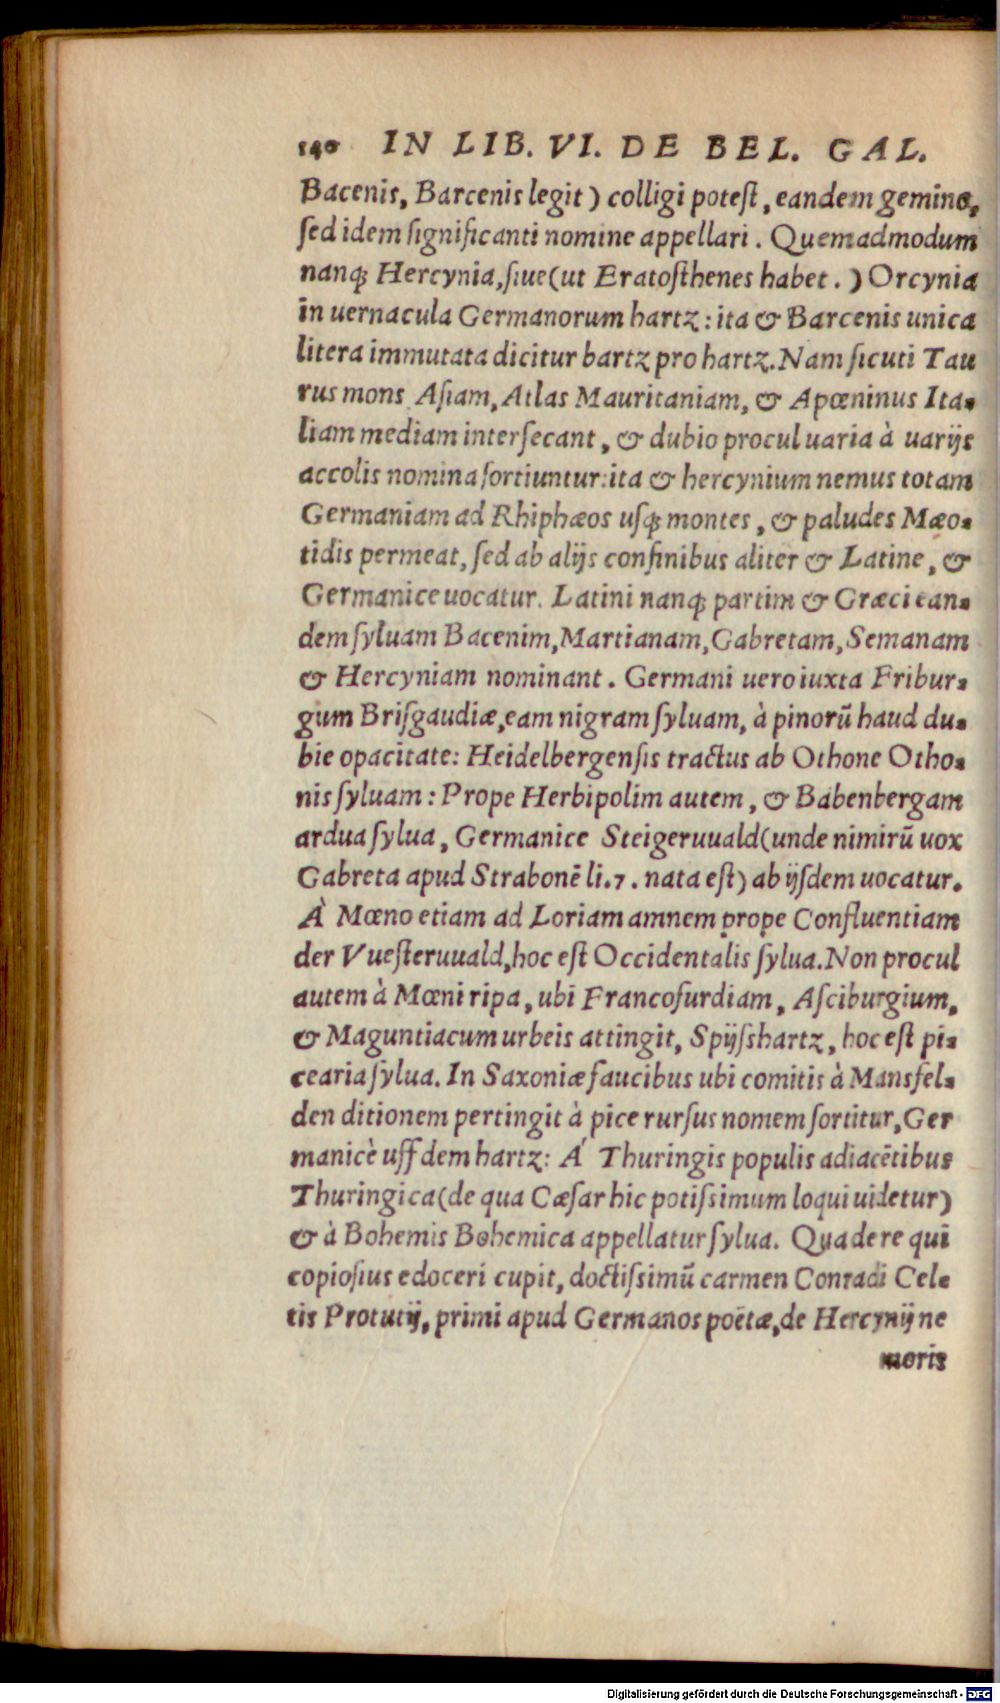 140 IN LIB. VI. DE BEL. GAL.
Bacenis, Barcenis legit) colligi potest, eandem gemino,
sed idem significanti nomine appellari. Quemadmodum
nanq́; Hercynia, siue (ut Eratosthenes habet.) Orcynia
in uernacula Germanorum hartz: ita & Barcenis unica
litera immutata dicitur bartz pro hartz. Nam sicuti Tau
rus mons Asiam, Atlas Mauritaniam, & Apœninus Ita-
liam mediam intersecant, & dubio procul uaria à uarijs
accolis nomina sortiuntur: ita & hercynium nemus totam
Germaniam ad Rhiphæos usq́; montes, & paludes Mæo-
tidis permeat, sed ab alijs confinibus aliter & Latine, &
Germanice uocatur. Latini nanq́; partim & Græci ean-
dem syluam Bacenim, Martianam, Gabretam, Semanam
& Hercyniam nominant. Germani uero iuxta Fribur-
gum Brisgaudiæ, eam nigram syluam, à pinorū haud du-
bie opacitate: Heidelbergensis tractus ab Othone Otho-
nis syluam: Prope Herbipolim autem, & Babenbergam
ardua sylua, Germanice Steigeruuald (unde nimirū uox
Gabreta apud Strabonē li. 7. nata est) ab ijsdem uocatur.
À Mœno etiam ad Loriam amnem prope Confluentiam
der Vuesteruuald, hoc est Occidentalis sylua. Non procul
autem à Mœni ripa, ubi Francofurdiam, Asciburgium,
& Maguntiacum urbeis attingit, Spijsshartz, hoc est pi-
cearia sylua. In Saxoniæ faucibus ubi comitis à Mansfel-
den ditionem pertingit à pice rursus nomem sortitur, Ger
manicè uff dem hartz: Á Thuringis populis adiacētibus
Thuringica (de qua Cæsar hic potissimum loqui uidetur)
& à Bohemis Bohemica appellatur sylua. Qua de re qui
copiosius edoceri cupit, doctissimū carmen Conradi Cel-
tis Protutij, primi apud Germanos poëtæ, de Hercynij ne
moris
Digitalisierung gefördert durch die Deutsche Forschungsgemeinschaft - DFG